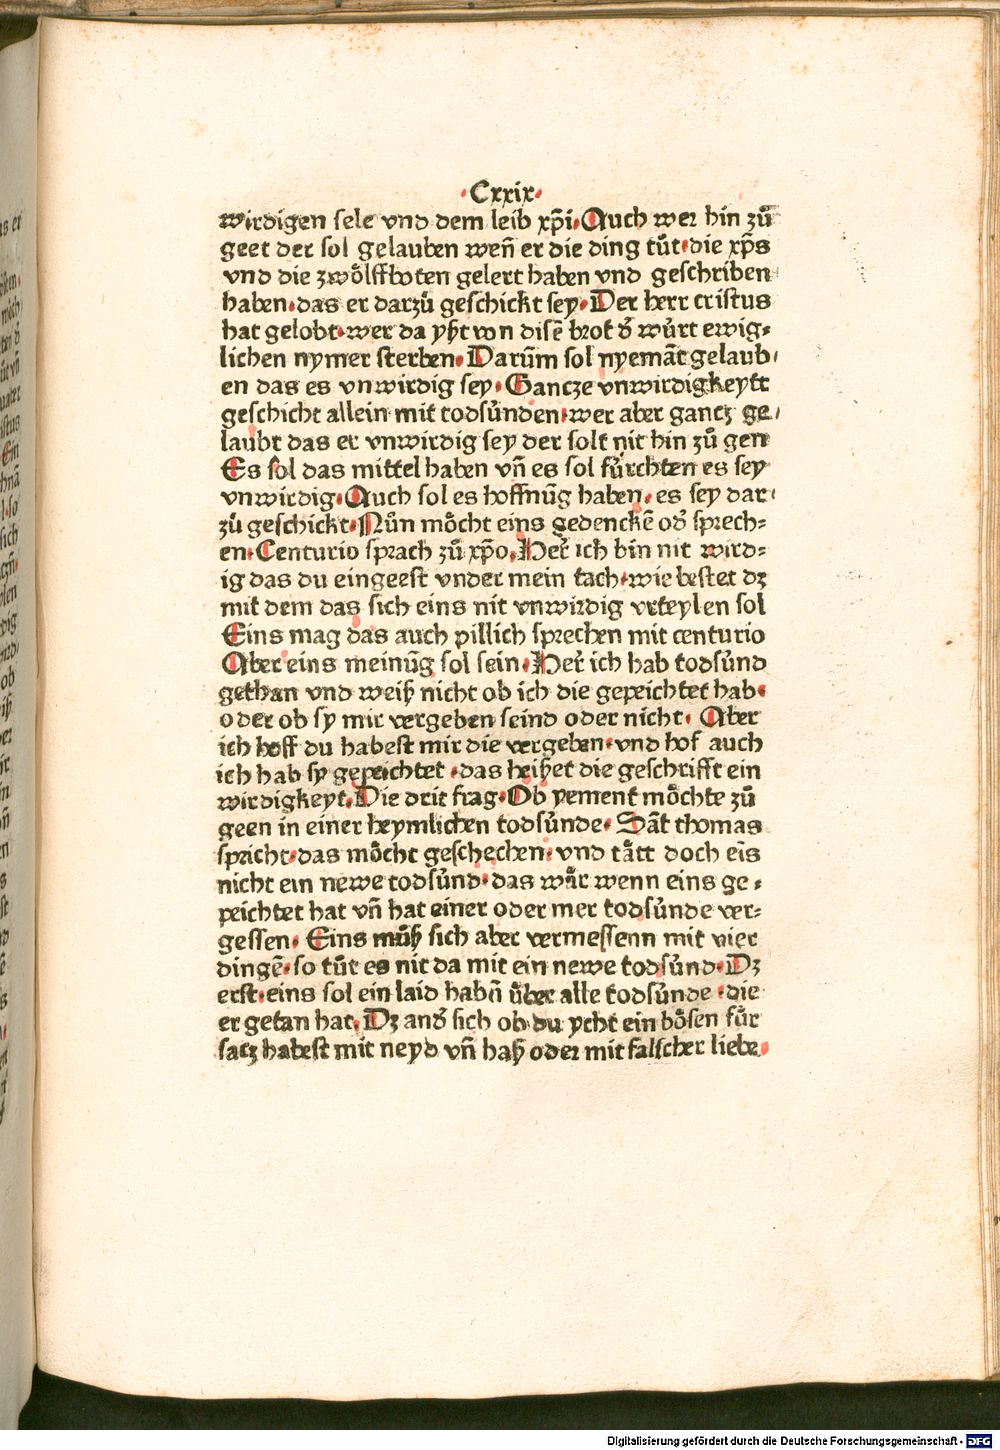 ·Cxxix·
wirdigen sele vnd dem leib xp̄i·Auch wer hin zů
geet der sol gelauben weñ er die ding tůt·die xp̄s
vnd die zwölffboten gelert haben vnd geschriben
haben·das er darzů geschickt sey·Der herr cristus
hat gelobt·wer da yßt von disē brot d̄ würt ewig⸗
lichen nymer sterben·Darūm sol nyemāt gelaub⸗
en das es vnwirdig sey·Gancze vnwirdigkeytt
geschicht allein mit todsünden·wer aber gancz ge⸗
laubt das er vnwirdig sey der solt nit hin zů gen
Es sol das mittel haben vñ es sol fürchten es sey
vnwirdig·Auch sol es hoffnūg haben·es sey dar⸗
zů geschickt·Nůn möcht eins gedenckē od̄ sprech⸗
en·Centurio sprach zů xp̄o·Her̄ ich bin nit wird⸗
ig das du eingeest vnder mein tach·wie bestet dz
mit dem das sich eins nit vnwirdig vrteylen sol
Eins mag das auch pillich sprechen mit centurio
Aber eins meinūg sol sein·Her̄ ich hab todsünd
gethan vnd weiß nicht ob ich die gepeichtet hab·
oder ob sy mir vergeben seind oder nicht· Aber
ich hoff du habest mir die vergeben·vnd hof auch
ich hab sy gepeichtet ·das heißet die geschrifft ein
wirdigkeyt·Die drit frag·Ob yement möchte zů
geen in einer heymlichen todsünde· Sāt thomas
spricht·das möcht geschechen·vnd tått doch eīs
nicht ein newe todsünd·das wår wenn eins ge⸗
peichtet hat vñ hat einer oder mer todsünde ver⸗
gessen· Eins můß sich aber vermessenn mit vier
dingē·so tůt es nit da mit ein newe todsünd·Dz
erst·eins sol ein laid habñ über alle todsünde ·die
er getan hat·Dz and̄ sich ob du ycht ein bösen für
satz habest mit neyd vñ haß oder mit falscher liebe·
Digitalisierung gefördert durch die Deutsche Forschungsgemeinschaft - DFG